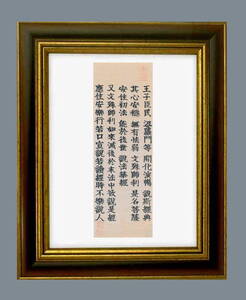 王子臣民 婆羅門等 開化演暢 說斯經典
其心安隱 無有怯弱 文殊師利 是名菩薩
安住初法 能於後世 說法華經
又文殊師利如來滅後於末法中欲說是經
應住安樂行若口宣說若讀經時不樂說人